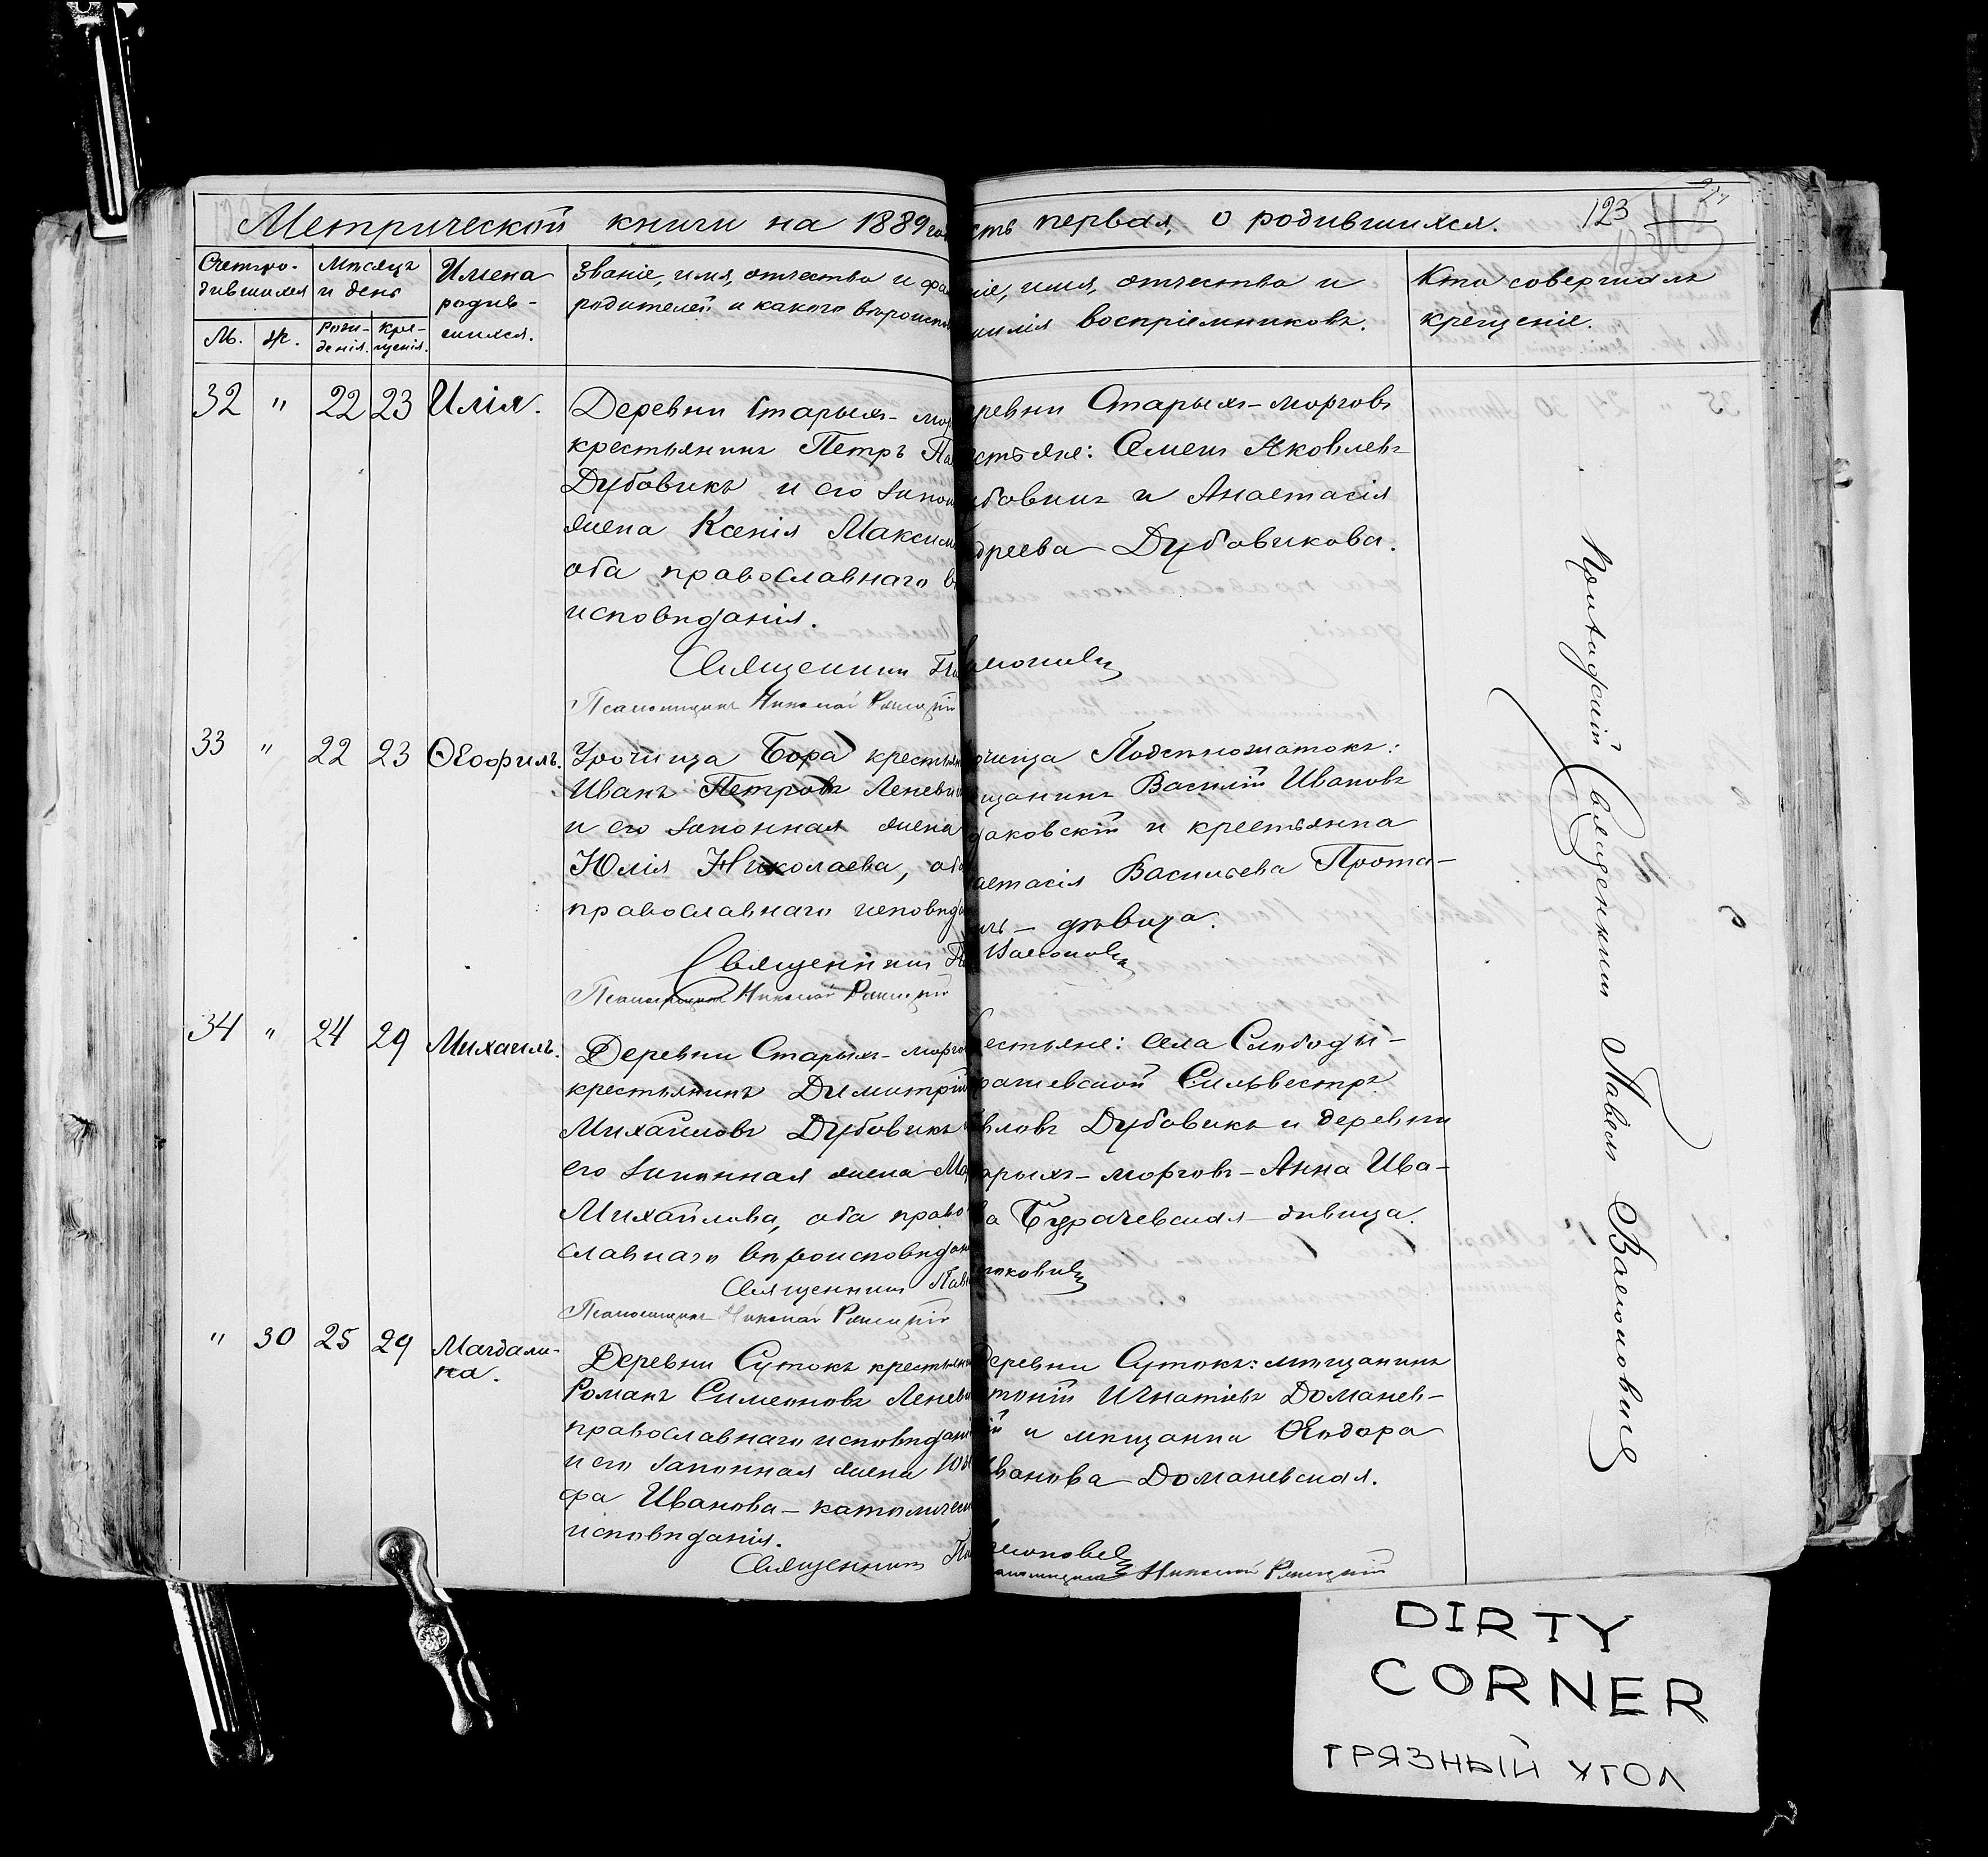 Метрической книги на 1889 го
сть первая, о родившихся. 123
Счетъ ро-
дившихся
Мѣсяцъ
и день
Имена
родив-
шихся.
М. ж. Рож-
денія. Кре-
щенія.
Званіе, имя, отчество и фа
родителей и какого вѣроиспо
ніе, имя, отчество и
милія воспріемниковъ.
Кто совершалъ
крещеніе.
32 " 22 23 Илія.
Деревни Старыхъ-мор
крестьянинъ Петръ Па
Дубовикъ и его закон
жена Ксенія Максим
оба православнаго в
исповѣданія.
Священникъ Па
Псаломщикъ Николай
ревни Старыхъ-морговъ
стьяне: Семенъ Яковлевъ
и Анастасія
дреева Дубовикова.
33 " 22 23 Ѳеофилъ.
Урочища Бора крестьян
Иванъ Петровъ Леневи
и его законная жена
Юлія Николаева, об
православнаго исповѣд
Священникъ П
Псаломщикъ Николай
очища
щанинъ Василій Ивановъ
даковскій и крестьянка
астасія Васильева Прота-
дѣвица.
34 " 24 29 Михаилъ.
Деревни Старыхъ-морго
крестьянинъ Димитрій
Михайловъ Дубовикъ
его законная жена Ма
Михайлова, оба право
славнаго вѣроисповѣдан
Священникъ Пав
Псаломщикъ Николай
естьяне: села Слободы-
рашевской Сильвестръ
вловъ Дубовикъ и деревни
арыхъ-морговъ-Анна Ива-
ва Бурачевская-дѣвица.
" 30 25 29 Магдали-
на.
Деревни Сутокъ крестьян
Романъ Симеоновъ Ленев
православнаго исповѣдан
и его законная жена Юз
фа Иванова-католичес
исповѣданія.
Священникъ Па
Деревни Сутокъ: мѣщанинъ
тоній Игнатіевъ Доманев-
ій и мѣщанка Ѳеодора
Иванова Доманевская.
Николай
Священникъ Павелъ
DIRTY
CORNER
ГРЯЗНЫЙ УГОЛ